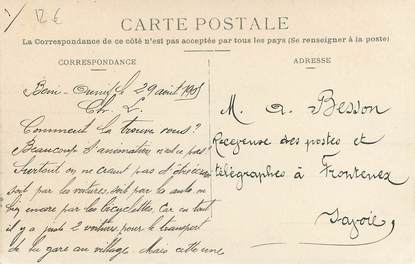 12 €
CARTE POSTALE
La Correspondance de ce côté n'est pas acceptée par tous les pays (Se renseigner à la poste)
CORRESPONDANCE
ADRESSE
Beni-Ounif le 29 août 1905
Ch. L.
Comment la trouvez vous?
Beaucoup d'animation n'est ce pas?
Surtout on ne craint pas d'être
soit par les voitures, soit par les autos, ou
encore par les bicyclettes, Car en tout
il y a juste 2 voitures pour le transport
de la gare au village. Mais cette une
M. A. Besson
Receveuse des postes et
télégraphes à Frontenex
Savoie